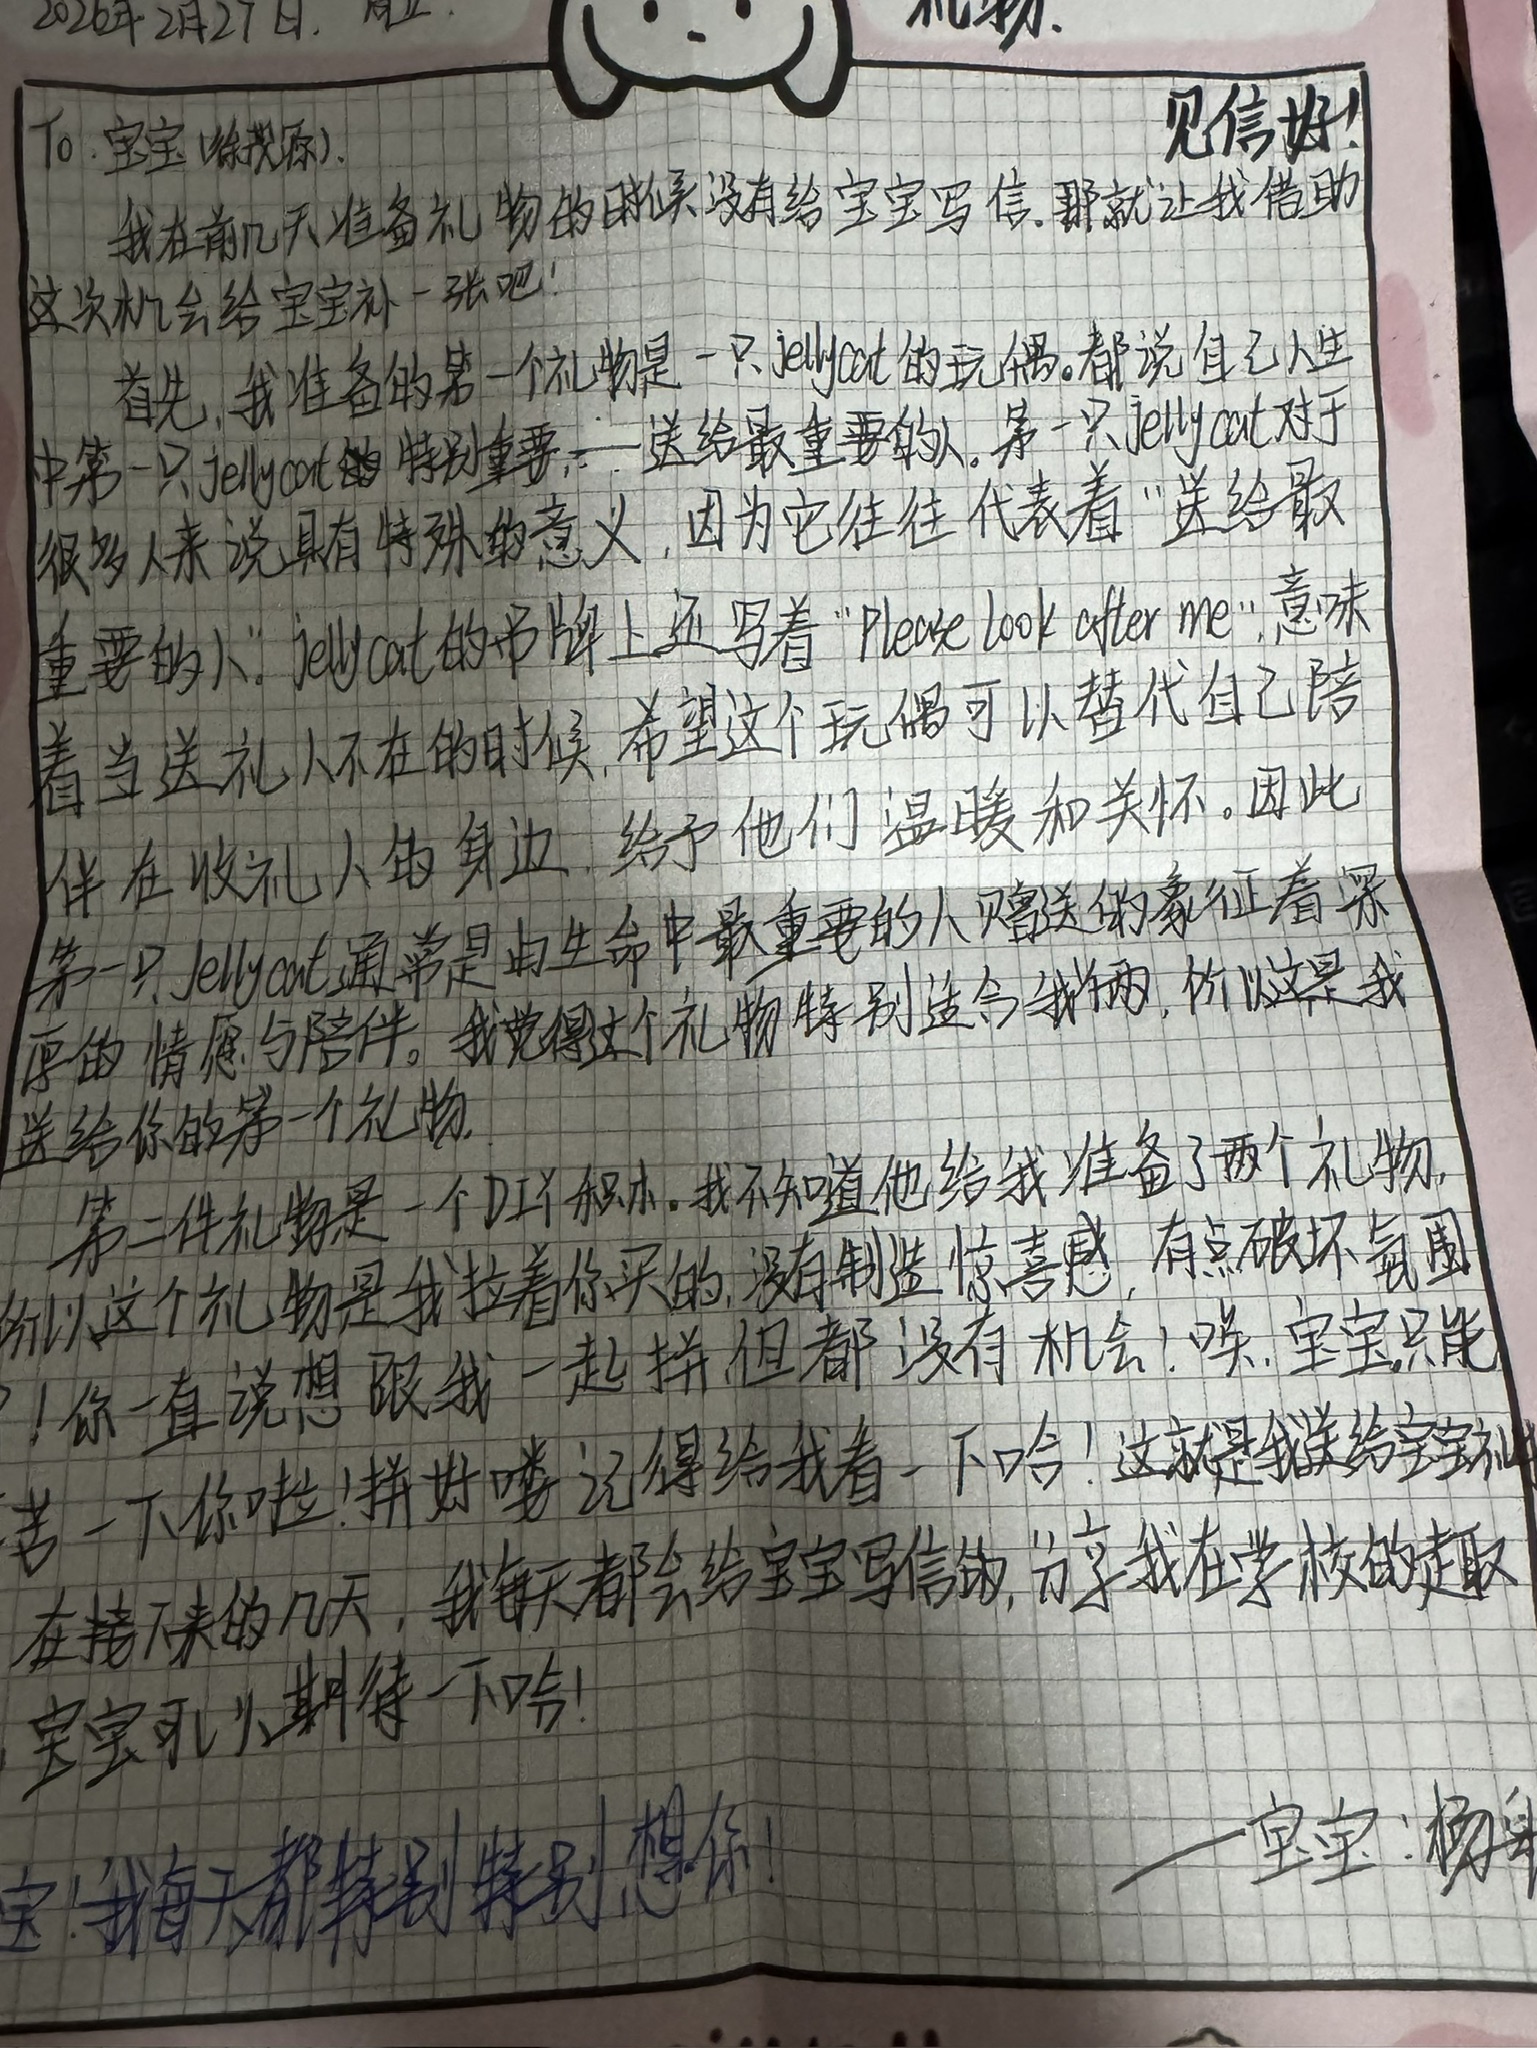 2026年2月27日. 周五.
礼物.
见信好!
To: 宝宝(徐我源).
我在前几天准备礼物的时候没有给宝宝写信.那就让我借助
这次机会给宝宝补一张吧!
首先,我准备的第一个礼物是一只jellycat的玩偶。都说自己人生
中第一只jellycat特别重要,——送给最重要的人。第一只jellycat对于
很多人来说具有特殊的意义,因为它往往代表着“送给最
重要的人”。jellycat的吊牌上还写着“Please look after me”,意味
着当送礼人不在的时候,希望这个玩偶可以替代自己陪
伴在收礼人的身边,给予他们温暖和关怀。因此
第一只jellycat通常是由生命中最重要的人赠送的象征着深
厚的情愿与陪伴。我觉得这个礼物特别适合我俩,所以这是我
送给你的第一个礼物.
第二件礼物是一个DIY积木.我不知道他给我准备了两个礼物,
所以这个礼物是我拉着你买的,没有制造惊喜感,有点破坏氛围
!你一直说想跟我一起拼,但都没有机会!唉,宝宝只能
苦一下你啦!拼好喽记得给我看一下哈!这就是我送给宝宝礼物
在接下来的几天,我每天都会给宝宝写信的,分享我在学校的趣
宝宝可以期待一下哈!
—宝宝:杨
宝!我每天都特别特别想你!